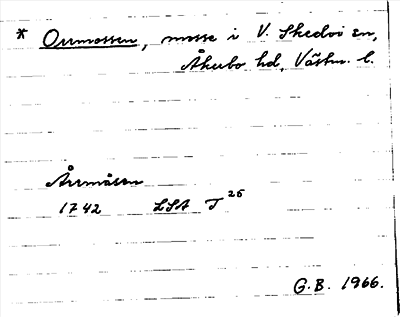 * Orrmossen, mosse i V. Skedvi sn,
Åkerbo hd, Västm. l.
Årrmåsen
1742 LSA T 26
G.B. 1966.